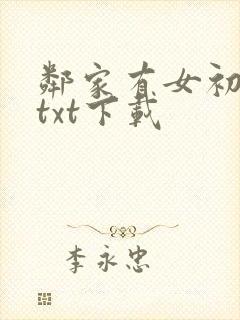 鄰家有女初
txt下載
李永忠